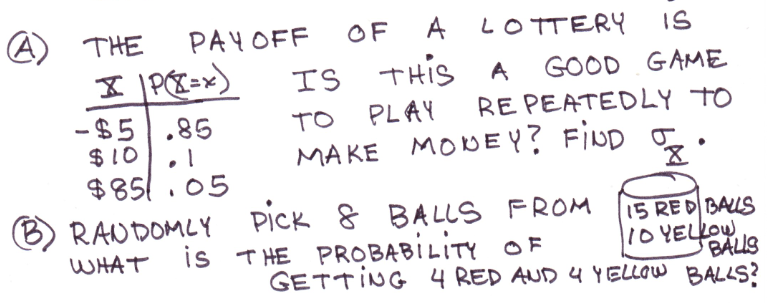 (A) THE PAYOFF OF A LOTTERY IS
X | P(X=x) IS THIS A GOOD GAME
-$5 | .85 TO PLAY REPEATEDLY TO
$10 | .1 MAKE MONEY? FIND σ_X.
$85 | .05
(B) RANDOMLY PICK 8 BALLS FROM 15 RED BALLS
10 YELLOW BALLS
WHAT IS THE PROBABILITY OF
GETTING 4 RED AND 4 YELLOW BALLS?